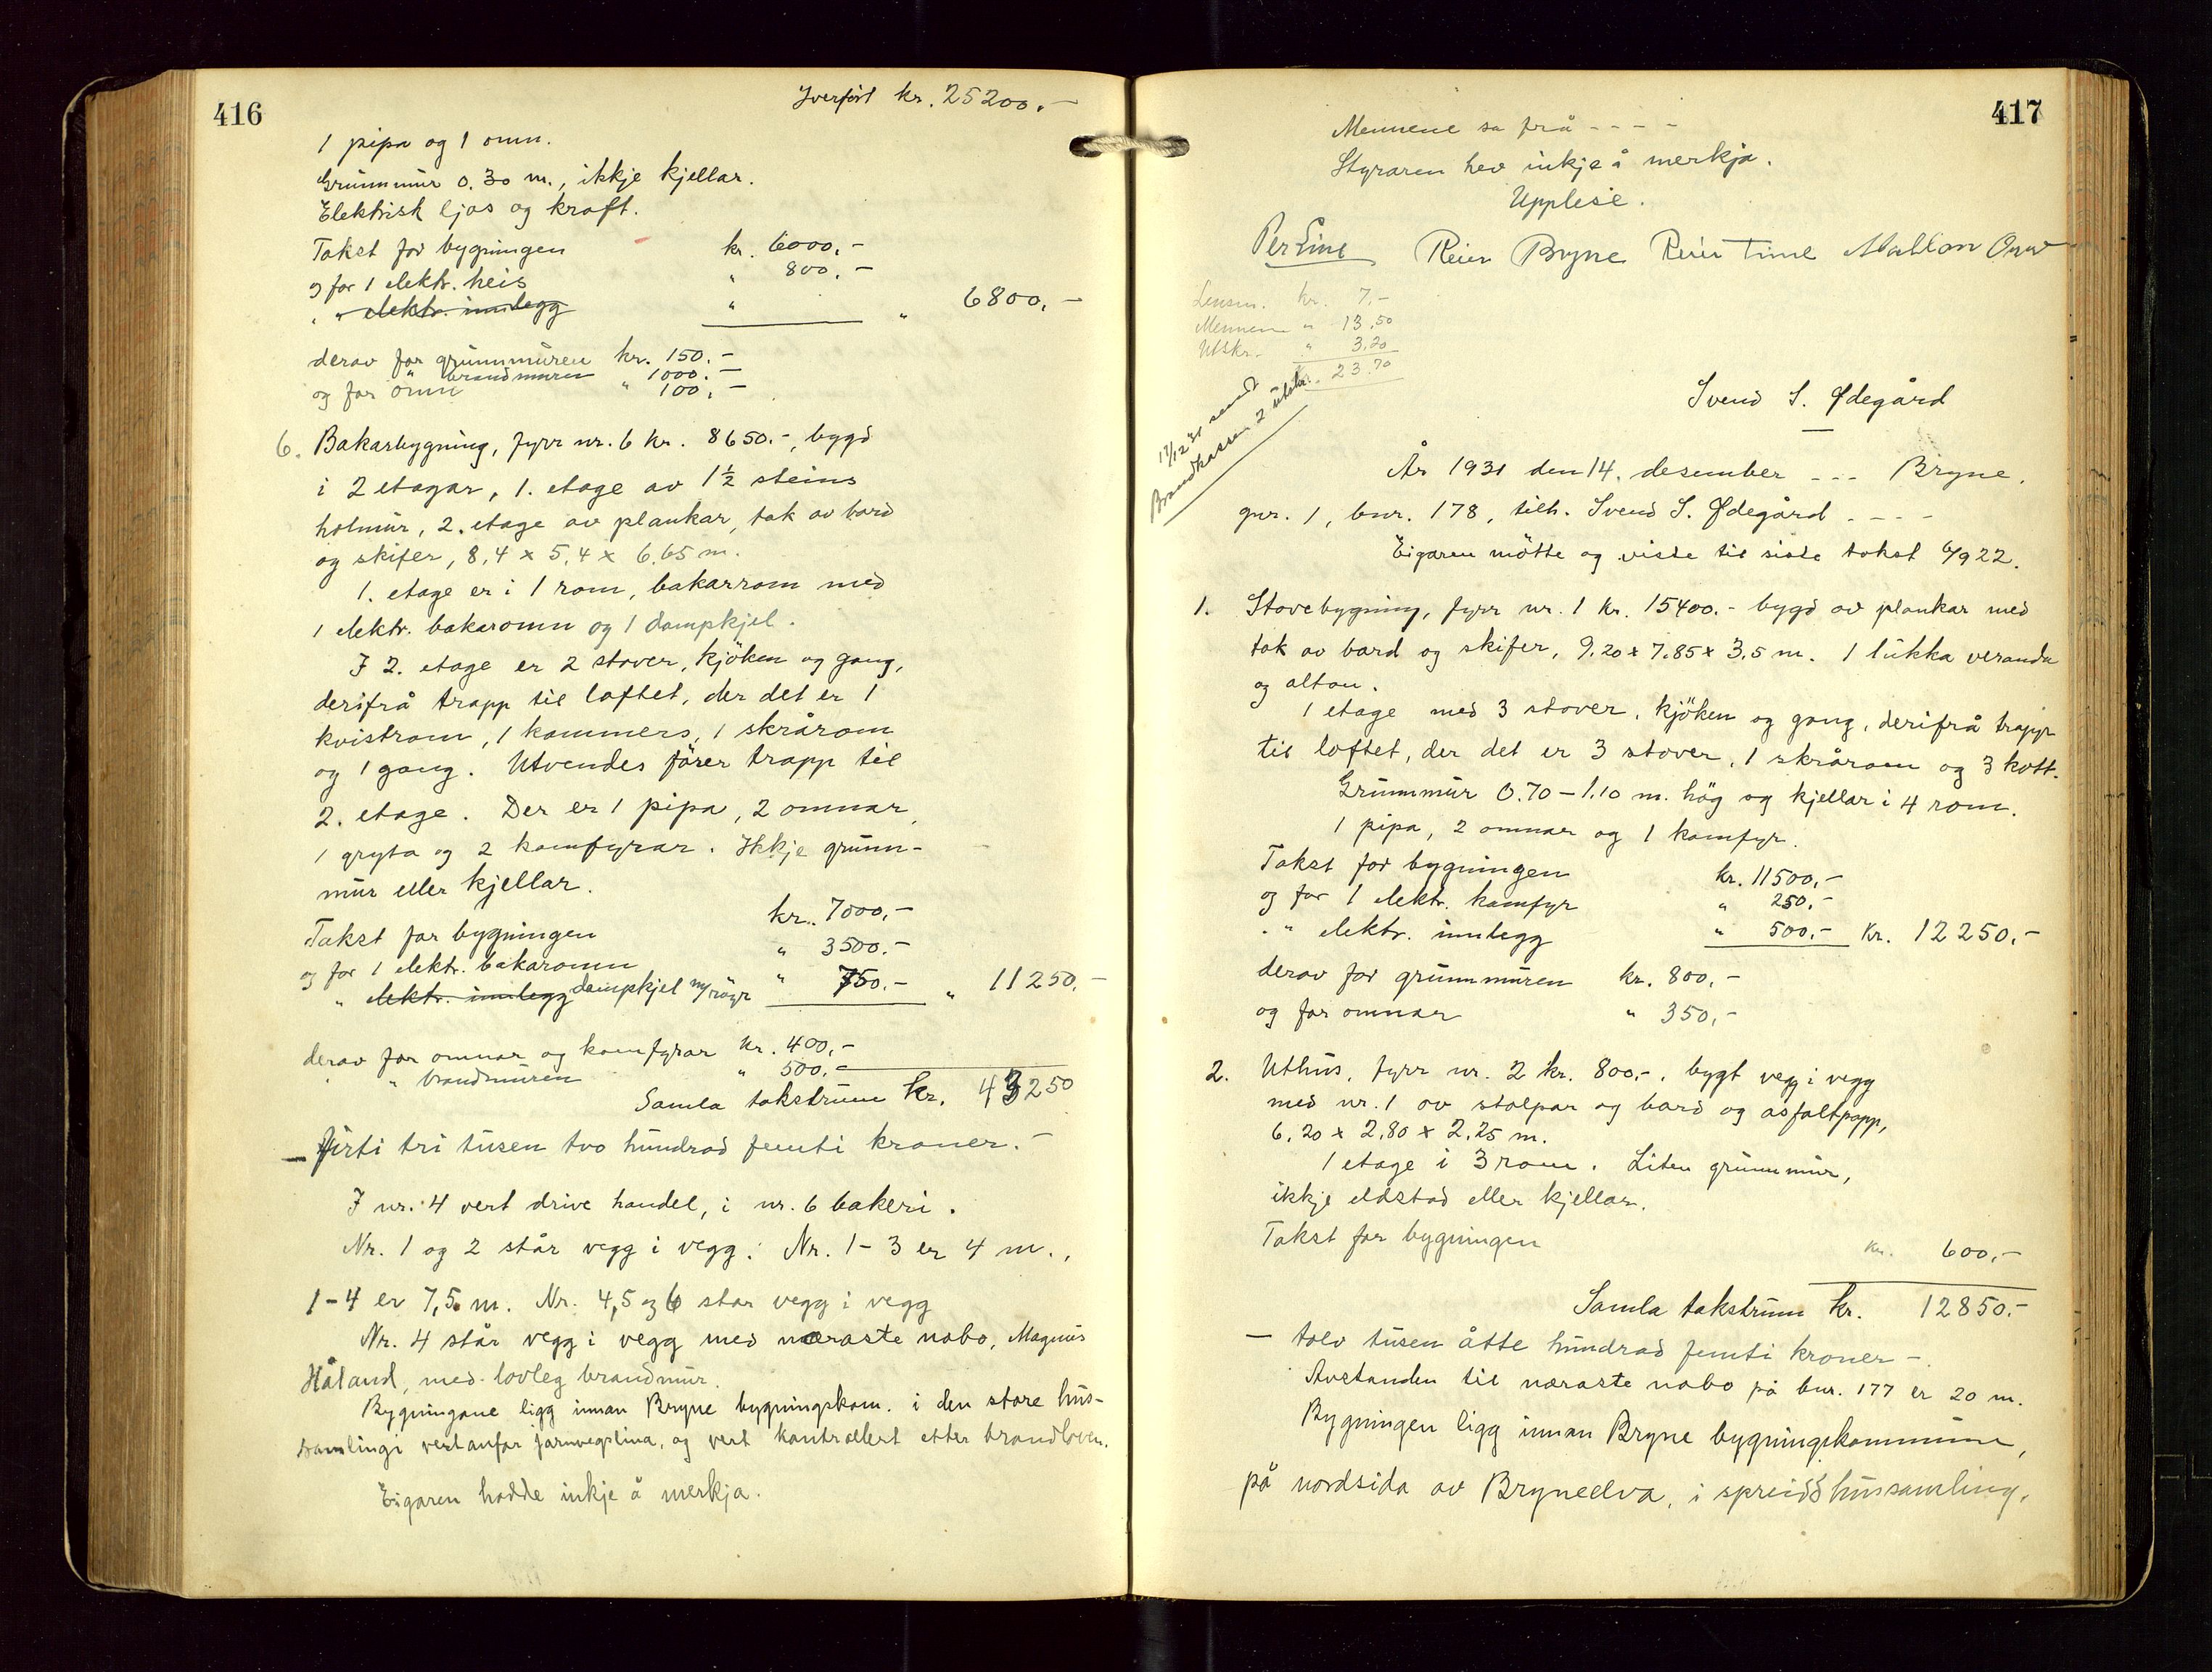 416
Yverført kr. 25200.-
1 pipa og 1 omn.
Grunnmur 0.30 m., ikkje kjellar.
Elektrisk ljos og kraft.
Takst for bygningen kr. 6000,-
og for 1 elektr. heis " 800,-
" " elektr. innlegg " " 6800,-
derav for grunnmuren kr. 150.-
" brandmuren 1000.-
og for omn " 100,-
6. Bakarbygning, fyrr nr. 6 kr. 8650.-, bygd
i 2 etagar, 1. etage av 1½ steins
holmur, 2. etage av plankar, tak av bord
og skifer, 8,4 x 5,4 x 6,65 m.
1. etage er i 1 rom, bakarrom med
1 elektr. bakaromn og 1 dampkjel.
I 2. etage er 2 stover, kjöken og gang,
derifrå trapp til loftet, der det er 1
kvistrom, 1 kammers, 1 skrårom
og 1 gang. Utvendes förer trapp til
2. etage. Der er 1 pipa, 2 omnar,
1 gryta og 2 komfyrar. Ikkje grunn-
mur eller kjellar.
Takst for bygningen kr. 7000,-
og for 1 elektr. bakaromn " 3500.-
" elektr. innlegg dampkjel m/röyr " 750.- " 11250,-
derav for omnar og komfyrar kr. 400,-
" " brandmuren " 500.-
Samla takstsum kr. 43250
- firti tri tusen tvo hundrad femti kroner.-
I nr. 4 vert drive handel, i nr. 6 bakeri.
Nr. 1 og 2 står vegg i vegg. Nr. 1-3 er 4 m.,
1-4 er 7,5 m. Nr. 4,5 og 6 star vegg i vegg
Nr. 4 står vegg i vegg med næraste nabo, Magnus
Håland, med lovleg brandmur.
Bygningane ligg innan Bryne bygningskom. i den store hus-
samlingi vestanfor jarnvegslina, og vert kontrollert etter brandloven.
Eigaren hadde inkje å merkja.
417
Mennene sa frå - - - -
Styraren hev inkje å merkja.
Upplese.
Per Lime Reier Bryne Reier Time
Lensm. kr. 7,-
Mennene " 13,50
Utskr. " 3,20
kr. 23.70
17/12 31 sendt
Brandkassen 2 utskr.
Svend S. Ødegård
År 1931 den 14. desember - - - Bryne.
gnr. 1, bnr. 178, tilh. Svend S. Ødegård - - - -
Eigaren mötte og viste til siste takst 6/9 22.
1. Stovebygning, fyrr nr. 1 kr. 15400.- bygd av plankar med
tak av bord og skifer, 9,20 x 7,85 x 3,5 m. 1 lukka veranda
og altan.
1 etage med 3 stover, kjöken og gang, derifrå trapp
til loftet, der det er 3 stover, 1 skrårom og 3 kott.
Grunnmur 0.70 - 1.10 m. hög og kjellar i 4 rom.
1 pipa, 2 omnar og 1 komfyr.
Takst for bygningen kr. 11500,-
og for 1 elektr. komfyr " 250,-
" " elektr. innlegg " 500,- kr. 12250,-
derav for grunnmuren kr. 800,-
og for omnar " 350,-
2. Uthus, fyrr nr. 2 kr. 800,-, bygt vegg i vegg
med nr. 1 av stolpar og bord og asfaltpapp,
6,20 x 2,80 x 2,25 m.
1 etage i 3 rom. Liten grunnmur,
ikkje eldstad eller kjellar.
Takst for bygningen kr. 600,-
Samla takstsum kr. 12850.-
- tolv tusen åtte hundrad femti kroner -.
Avstanden til næraste nabo på bnr. 177 er 20 m.
Bygningen ligg innan Bryne bygningskommune,
på nordsida av Bryneelva, i spreidd hussamling.